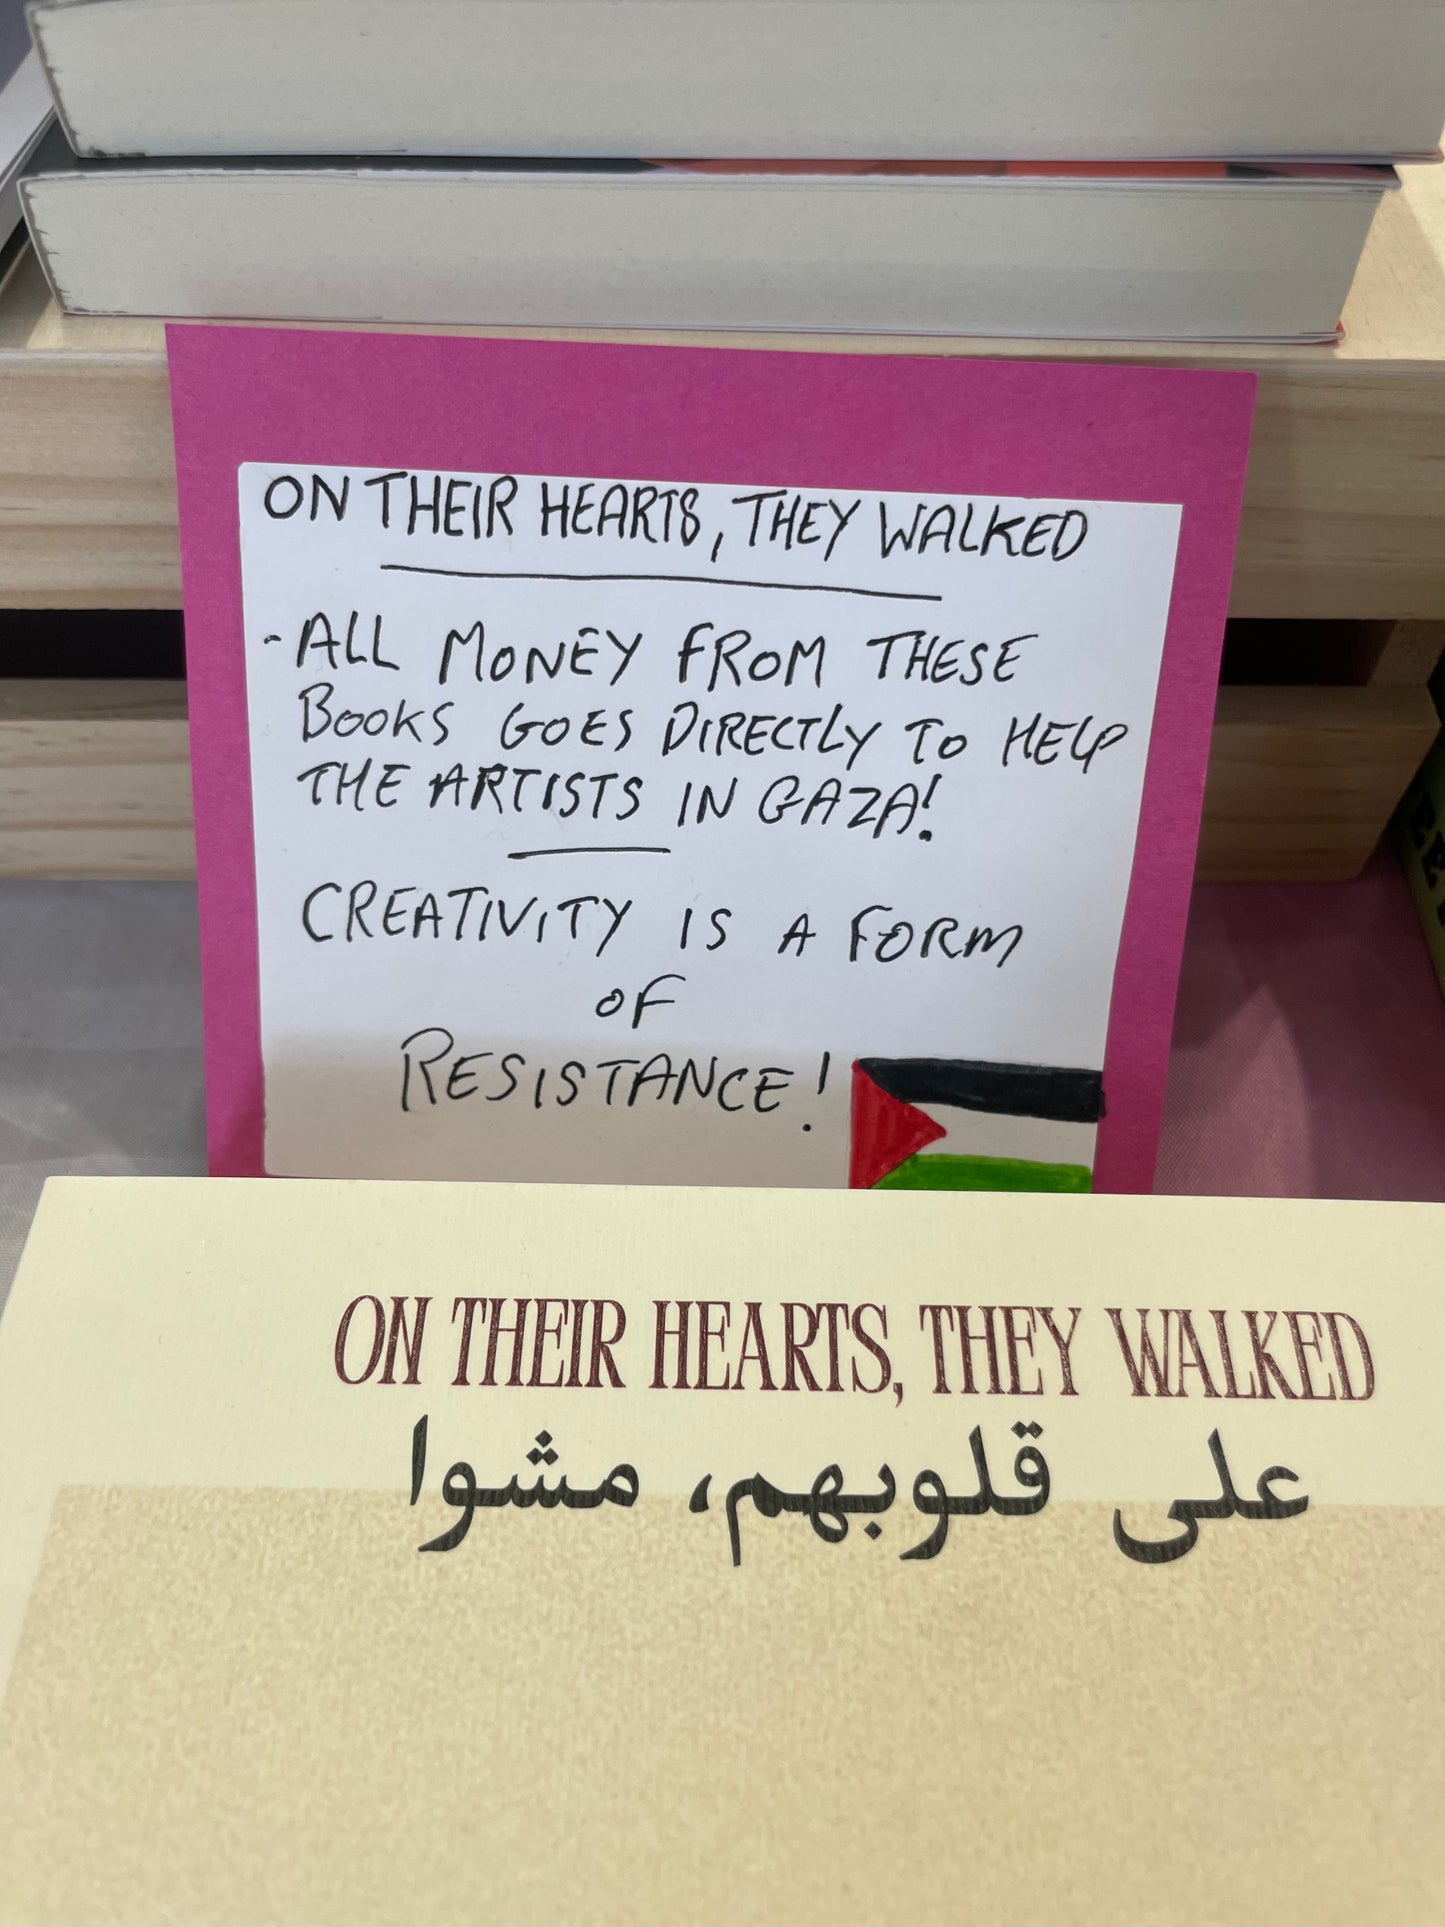 ON THEIR HEARTS, THEY WALKED
- ALL MONEY FROM THESE
BOOKS GOES DIRECTLY TO HELP
THE ARTISTS IN GAZA!
CREATIVITY IS A FORM
OF
RESISTANCE!
ON THEIR HEARTS, THEY WALKED
على قلوبهم، مشوا